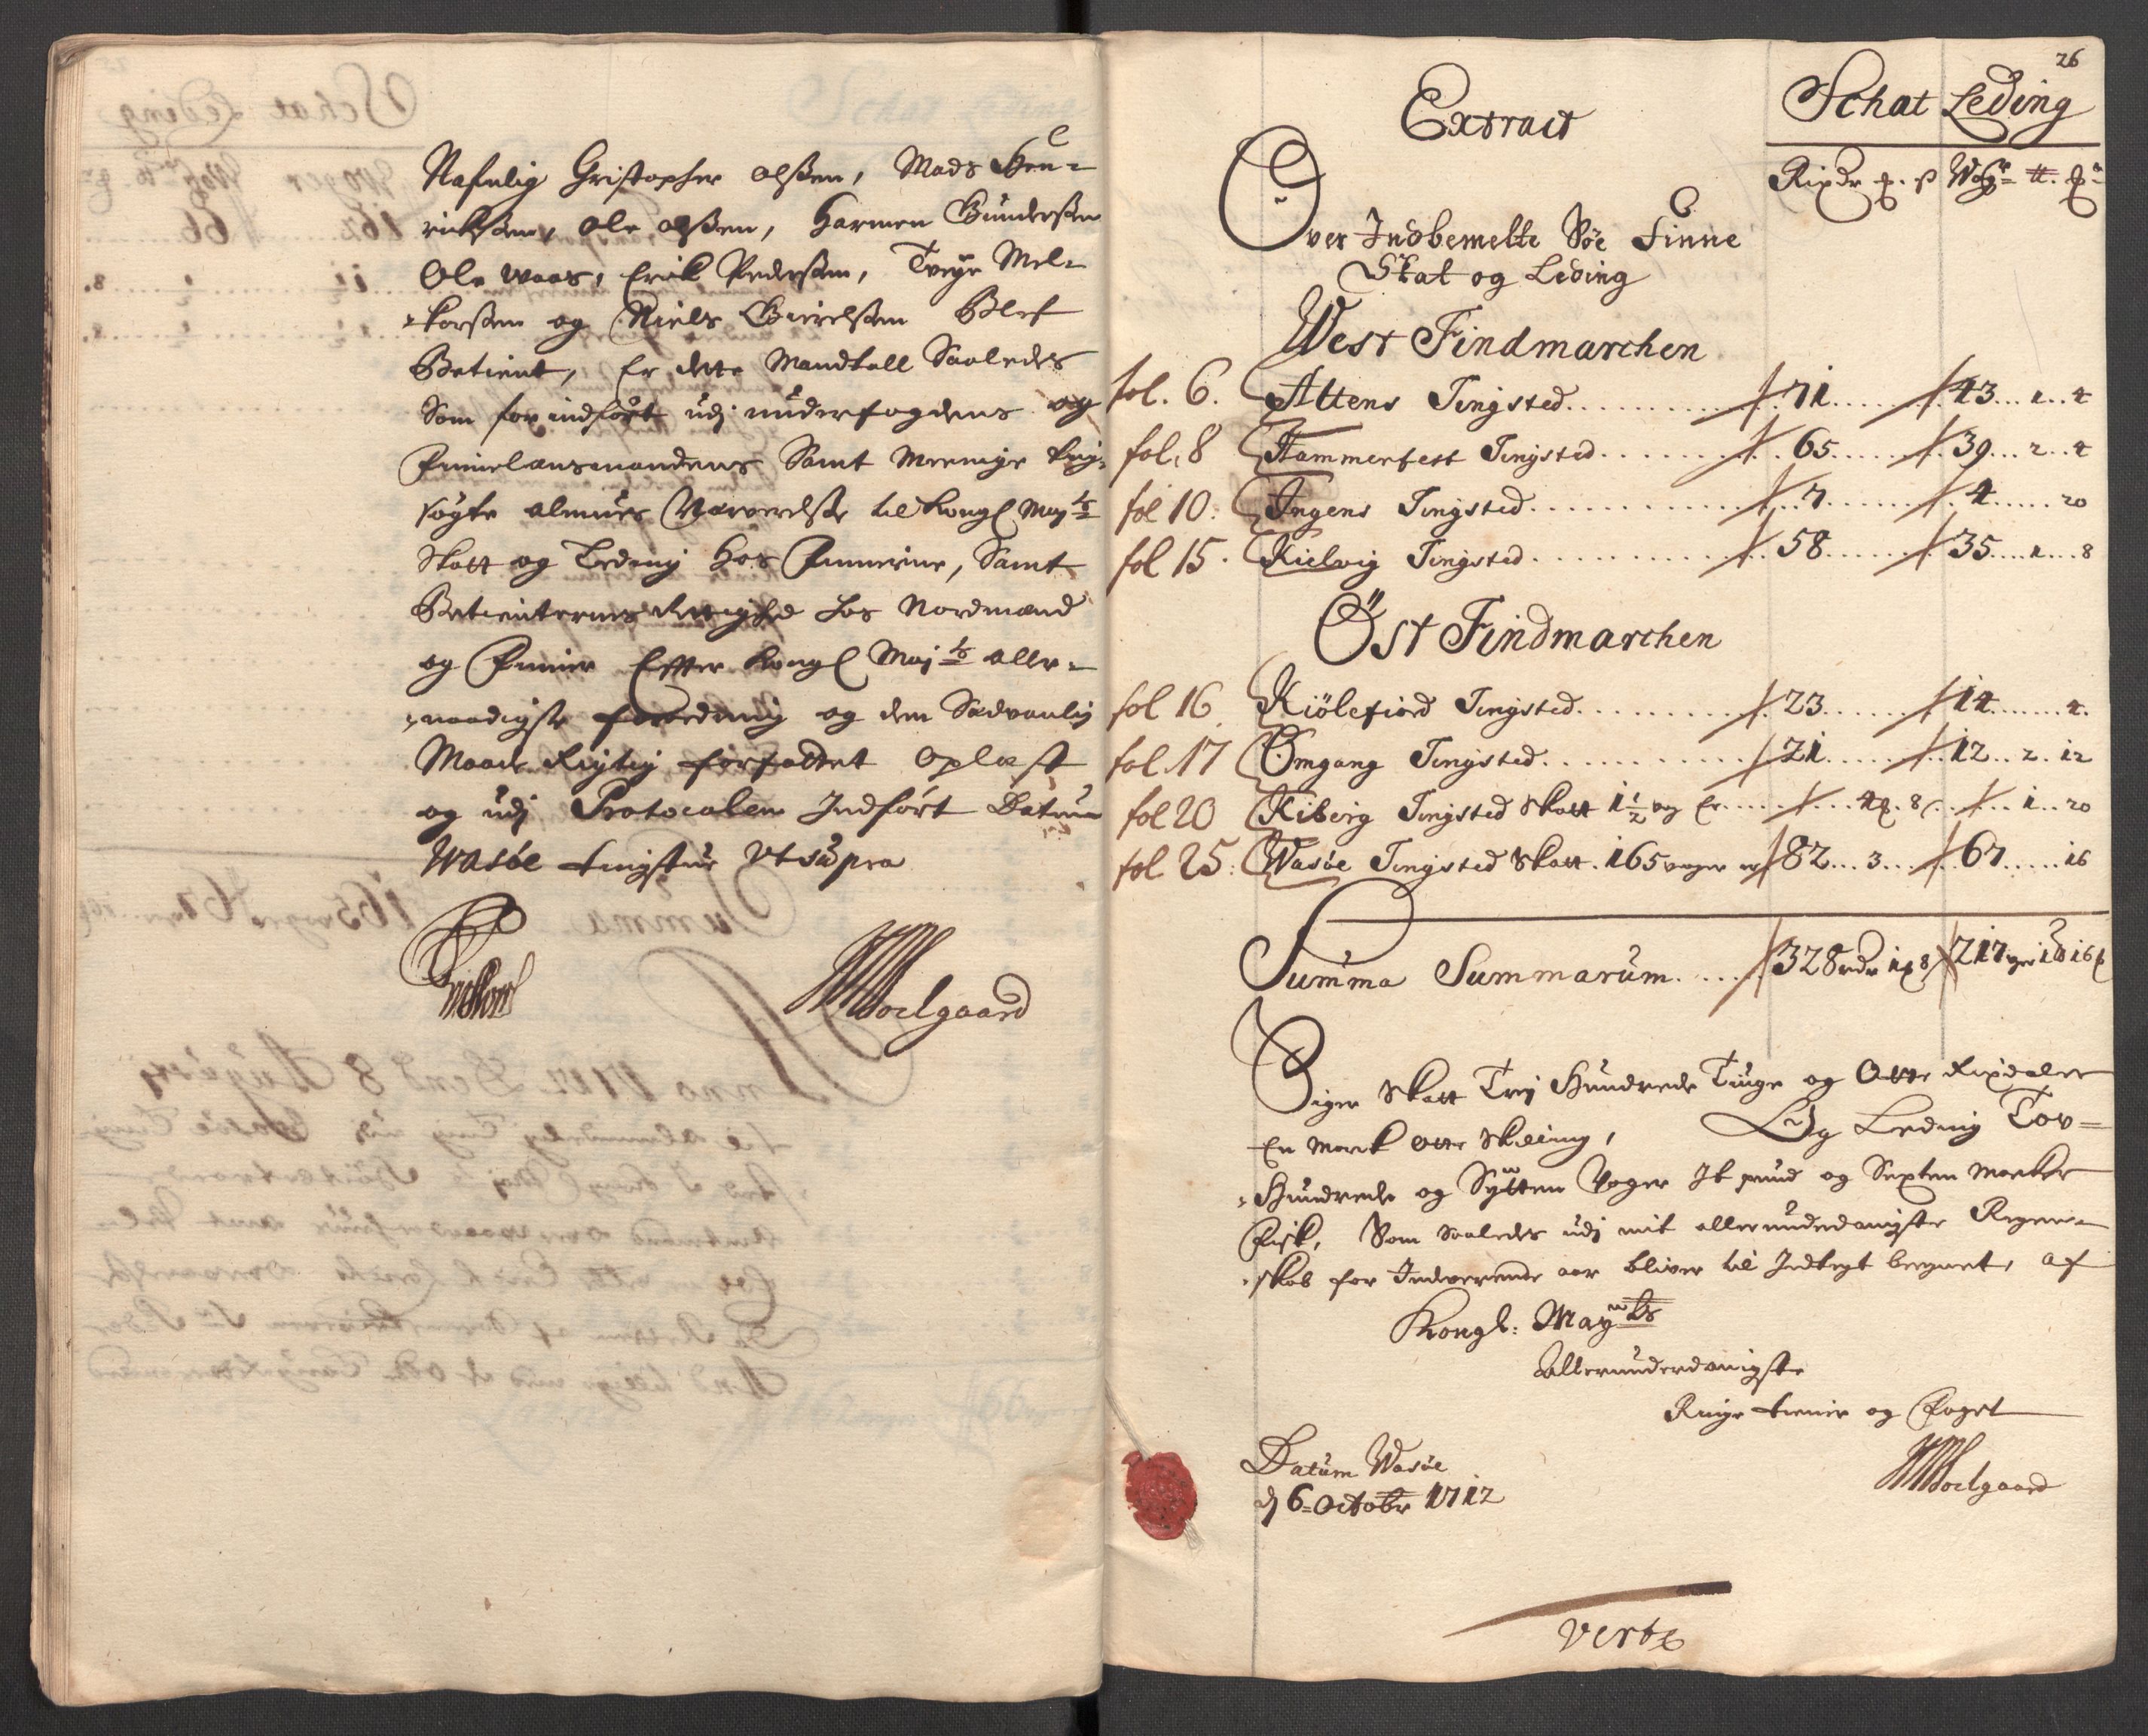 Nafnlig Christopher Olssen, Mads Hen-
richsen, Ole Olssen, Harmen Gundersen
Ole Waas, Erik Pedersen, Trege Mel-
korsen og Niels Giertsen Blef
Betient, Er dette Mandtall Saaledes
Som for indført udj underfogdens og
Finnelænsmandens Samt Meenige ting-
søgte almues Nærverelse til Kongl May ts
Skatt og Leding hos Finnerne, Samt
Betienternes Rettighed hos Nordmænd
og Finner Effter Kongl Maj ts aller-
naadigste forordning og den Sædvanlig
Maade Rigtig forfattet Oplæst
og udj Protocolen Indført Datum
Wasöe tingstue Ut supra
Soelgaard
26
Schat Leding
Extract
Rixdr ꝑ. ß Woger ℔. ꝑr
Over Indbemelte Söe Finne
Skat og Leding
West Findmarchen
fol. 6. Altens Tingsted . . . . 71 . . . . 43 . . . 1 . . 4
fol. 8 Hammerfest Tingsted . . . . 65 . . . . 39 . . . 2 . . 4
fol 10. Ingens Tingsted . . . . 7 . . . . 4 . . . . 20
fol 15. Kielvig Tingsted . . . . 58 . . . . 35 . . . 1 . . . 8
Öst Findmarchen
fol 16 Kiölefiord Tingsted . . . . 23 . . . . 14 . . . . 4.
fol. 17 Omgang Tingsted . . . . 21 . . . . 12 . . 2 . 12
fol 20 Kiberg Tingsted Skatt 1 1/2 wog Er . . . . 4ꝑ. 8ß . . . . 1 . . 20
fol 25. Wasöe Tingsted Skatt. 165 woger er 82 . . . 3 . . . . 67 . . . . 16
Summa Summarum . . . . 328 rdr 1ꝑ 8ß 217 wger 1℔ 16ꝑ
Siger Skatt Trej Hundrede Tiuge og Otte Rixdaler
En Mark otte Skilling, Og Leding Tov-
Hundrede og Sÿtten Voger It pund og Sexten Marker
Fisk, Som Saaledes udj mit allerunderdanigste Regen-
skab for Indeverende aar bliver til Indtegt beregnet, af
Kongl: May ts
Allerunderdanigste
Ringe tiener og Foget
Soelgaard
Datum Wasöe
d 6 = Octobr 1712
verte